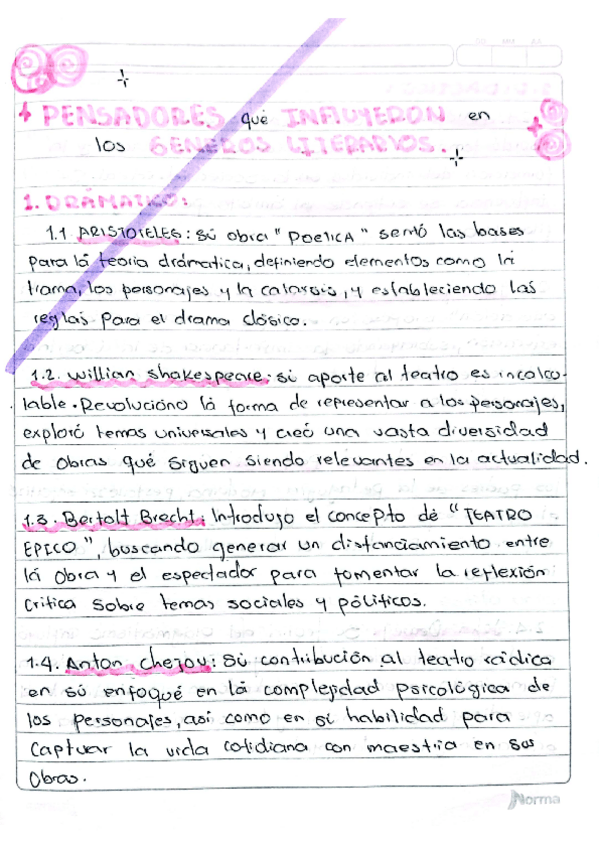 DD MM AA
+ PENSADORES que INFLUYERON en
los GENEROS LITERARIOS.
1. DRÁMATICO:
1.1 ARISTOTELES: sú obra "POETICA" sentó las bases
para lá teoria drámatica, definiendo elementos como la
trama, los personajes y la catarsis, y estableciendo las
reglas para el drama clásico.
1.2. Willian Shakespeare: sú aporte al teatro es incalcu-
lable. Revoluciónó lá forma de representar a los personajes,
exploró temas universales y creó una vasta diversidad
de obras qué siguen siendo relevantes en la actualidad.
1.3. Bertolt Brecht: Introdujo el concepto dé "TEATRO
EPICO", buscando generar un distanciamiento entre
lá obra y el espectador para fomentar la reflexión
critica sobre temas sociales y póliticos.
1.4. Anton Chejov: Sú contribución al teatro rádica
en sú enfoqué en lá complejidad psicológica de
los personajes, asi como en sú habilidad para
captuar la vida cotidiana con maestria en sus
obras.
Norma